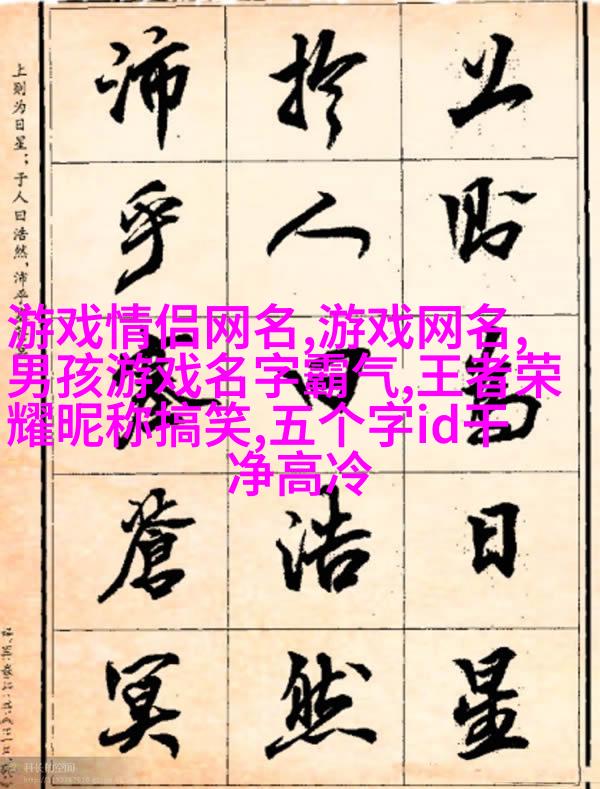 上則為日星
於人曰浩然
沛乎塞蒼冥
上则为日星；于人曰浩然，沛乎
游戏情侣网名,游戏网名,
男孩游戏名字霸气,王者荣
耀昵称搞笑,五个字id干
净高冷
科长的空间